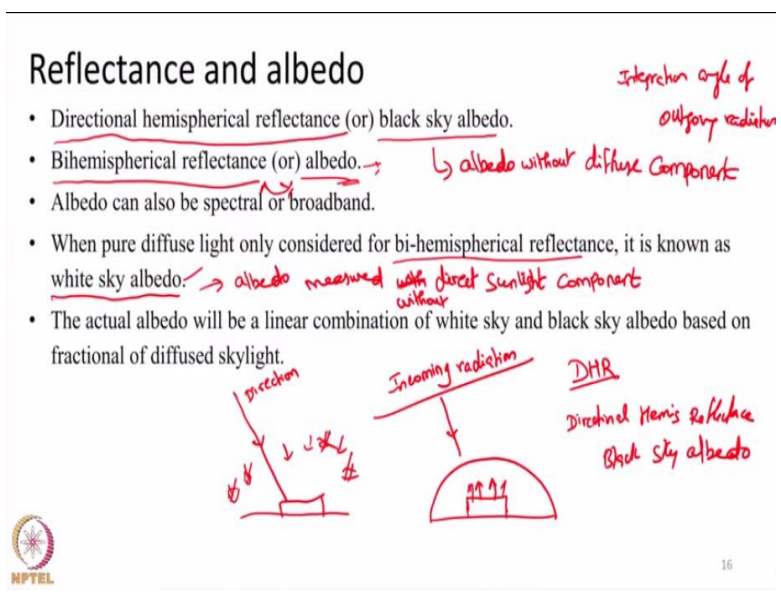 Reflectance and albedo
Integration angle of
outgoing radiation
• Directional hemispherical reflectance (or) black sky albedo.
• Bihemispherical reflectance (or) albedo.
↳ albedo without diffuse Component
• Albedo can also be spectral or broadband.
• When pure diffuse light only considered for bi-hemispherical reflectance, it is known as
white sky albedo. → albedo measured with direct Sunlight Component
without
• The actual albedo will be a linear combination of white sky and black sky albedo based on
fractional of diffused skylight.
Direction
Incoming radiation
DHR
Directional Hemis Reflectance
Black Sky albedo
NPTEL
16